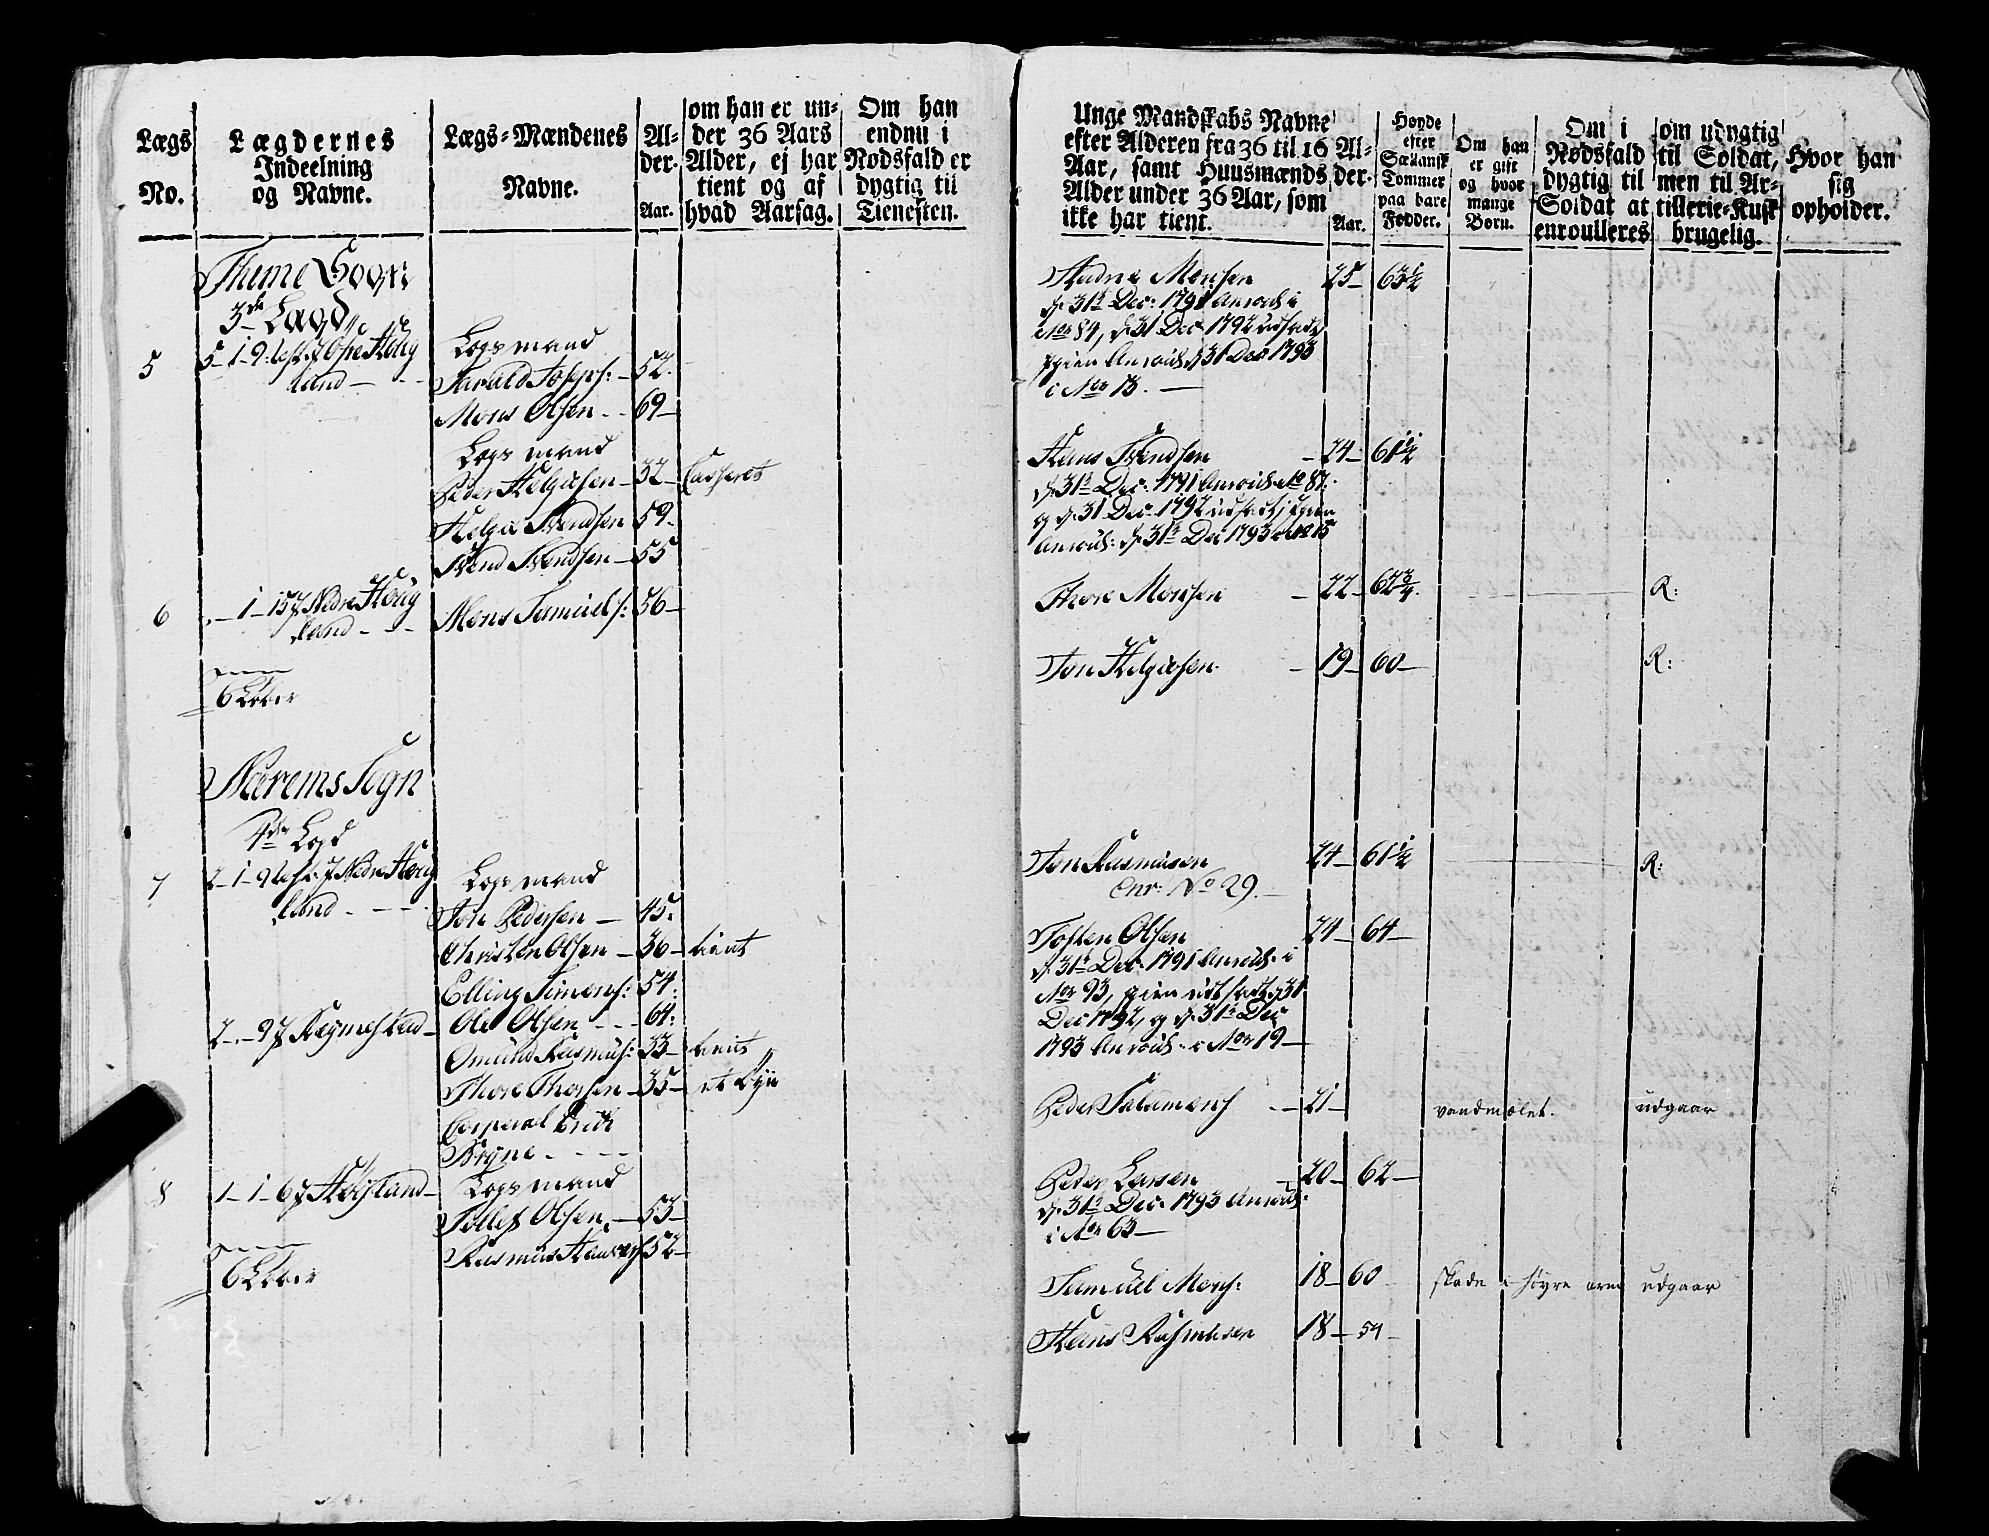 Lægs
No.
Lægdernes
Indeelning
og Navne.
Lægs-Mændenes
Navne.
Al-
der.
Aar.
om han er un-
der 36 Aars
Alder, ej har
tient og af
hvad Aarsag.
Om han
endnu i
Nødsfald er
dygtig til
Tienesten.
Thime Sogn
3de Lægd
5
5-1-9
Houg
land
Legsmand
Harald Josephs: 52.
Mons Olsen 69
Legsmand
Peder Helgesen 32 Casseret
Helge Svendsen 59.
Svend Svendsen 55
6
1-15 Nedre Houg
land
Mons Samuels: 56
6 Leger
Nærems Sogn
4de Legd
7
2-1-9 Nedre Houg
land
Legsmand
Jon Pedersen 45.
Christen Olsen 36 tient
Elling Simens: 54.
2-9
Ole Olsen 64.
Omund Rasmus: 33 tient
Thore Thorsen 35 et Øye
Corporal
Bryne
8
1-1-6 Høyland
Legsmand
Tollef Olsen 53
Rasmus 52
6 Leger
Unge Mandskabs Navne
efter Alderen fra 36 til 16
Aar, samt Huusmænds
Alder under 36 Aar, som
ikke har tient.
Al-
der.
Aar.
Høyde
efter
Siællansk
Tommer
paa bare
Fødder.
Om han
er gift
og hvor
mange
Børn.
Om i
Nødsfald
dygtig til
Soldat at
enroulleres
om udygtig
til Soldat,
men til Ar-
tillerie-Kusk
brugelig.
Hvor han
sig
opholder.
Aadne Monsen 25 63½
d. 31te Dec: 1791 Anroul: i
No 84, d. 31 Dec: 1792 udsadt,
igien Anroul: d. 31 Dec: 1793
i No 13.
Hans Svendsen 24 61½
d. 31te Dec: 1791 Anroul: No 87.
og d. 31 Dec: 1792 udsadt, igien
Anroul: d. 31te Dec 1793 No 15
Thore Monsen 22 62¾ R:
Jon Helgesen 19 60 R:
Jon Rasmusen 24 61½ R:
Enr: No 29.
Tosten Olsen 24 64
d. 31te Dec: 1791 Anroul: i
No 93, igien udsadt d. 31
Dec 1792, og d. 31te Dec
1793 Anroul: i No 19
Peder Salamons 21 vandmælet. udgaar
Peder Larsen 20 62
d. 31te Dec: 1793 Anroul:
i No 63
Samuel Mons: 18 60 skade i høyre arm udgaar
Hans Rasmusen 18 54